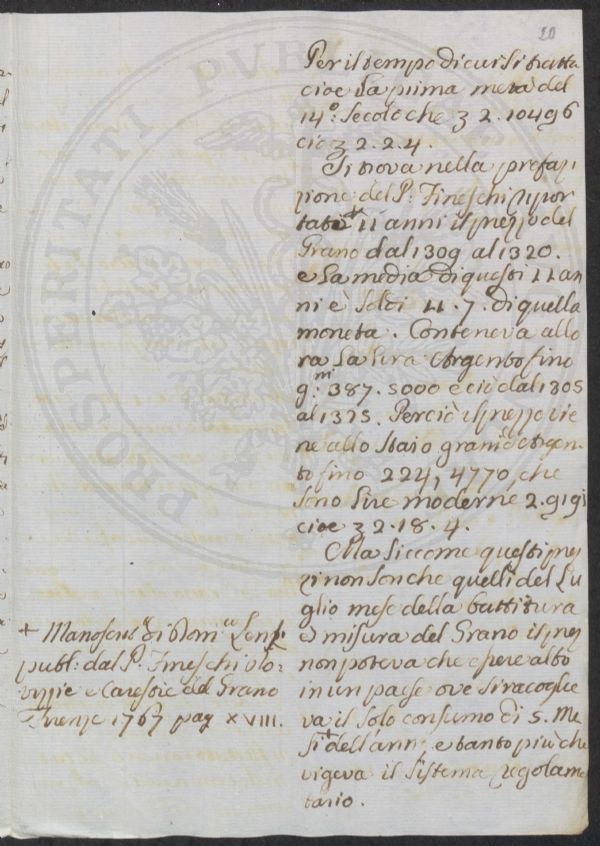 20
Per il tempo di cui si tratta
cioe la prima metà del
14º: Secolo che ʒ 2. 10496
cio ʒ 2. 2. 4.
Si trova nella prefaz
zione del P: Fineschi ripor
tato + 11 anni il prezzo del
Grano dal 1309 al 1320.
e la media di questi 11 an
ni è Soldi 11. 7. di quella
moneta. Conteneva allo
ra la Lira Argento fino
g:mi 387. 5000 e ciò dal 1305
al 1373. Perciò il prezzo vie
ne allo Staio grami Argen
to fino 224, 4770, che
sono Lire moderne 2. 9191
cioe ʒ 2. 18. 4.
Ma siccome questi prez
zi non son che quelli del Lu
glio mese della battitura
e misura del Grano il prez
non poteva che essere alto
in un paese ove si racoglie
va il solo consumo di 5. Me
si dell'anno e tanto più che
vigeva il Sistema regolame
tario.
+ Manoscrit di Dom Lenzi
publ: dal P: Fineschi
e Carestie del Grano
Firenze 1767 pag XVIII.
PROSPERITATI PUBLICAE